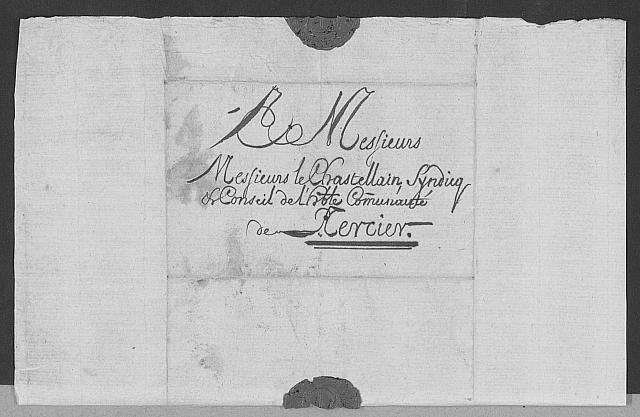 A Messieurs
Messieurs le Chastellain, Syndicq
& Conseil de l'hble Comũnauté
de Tercier.-